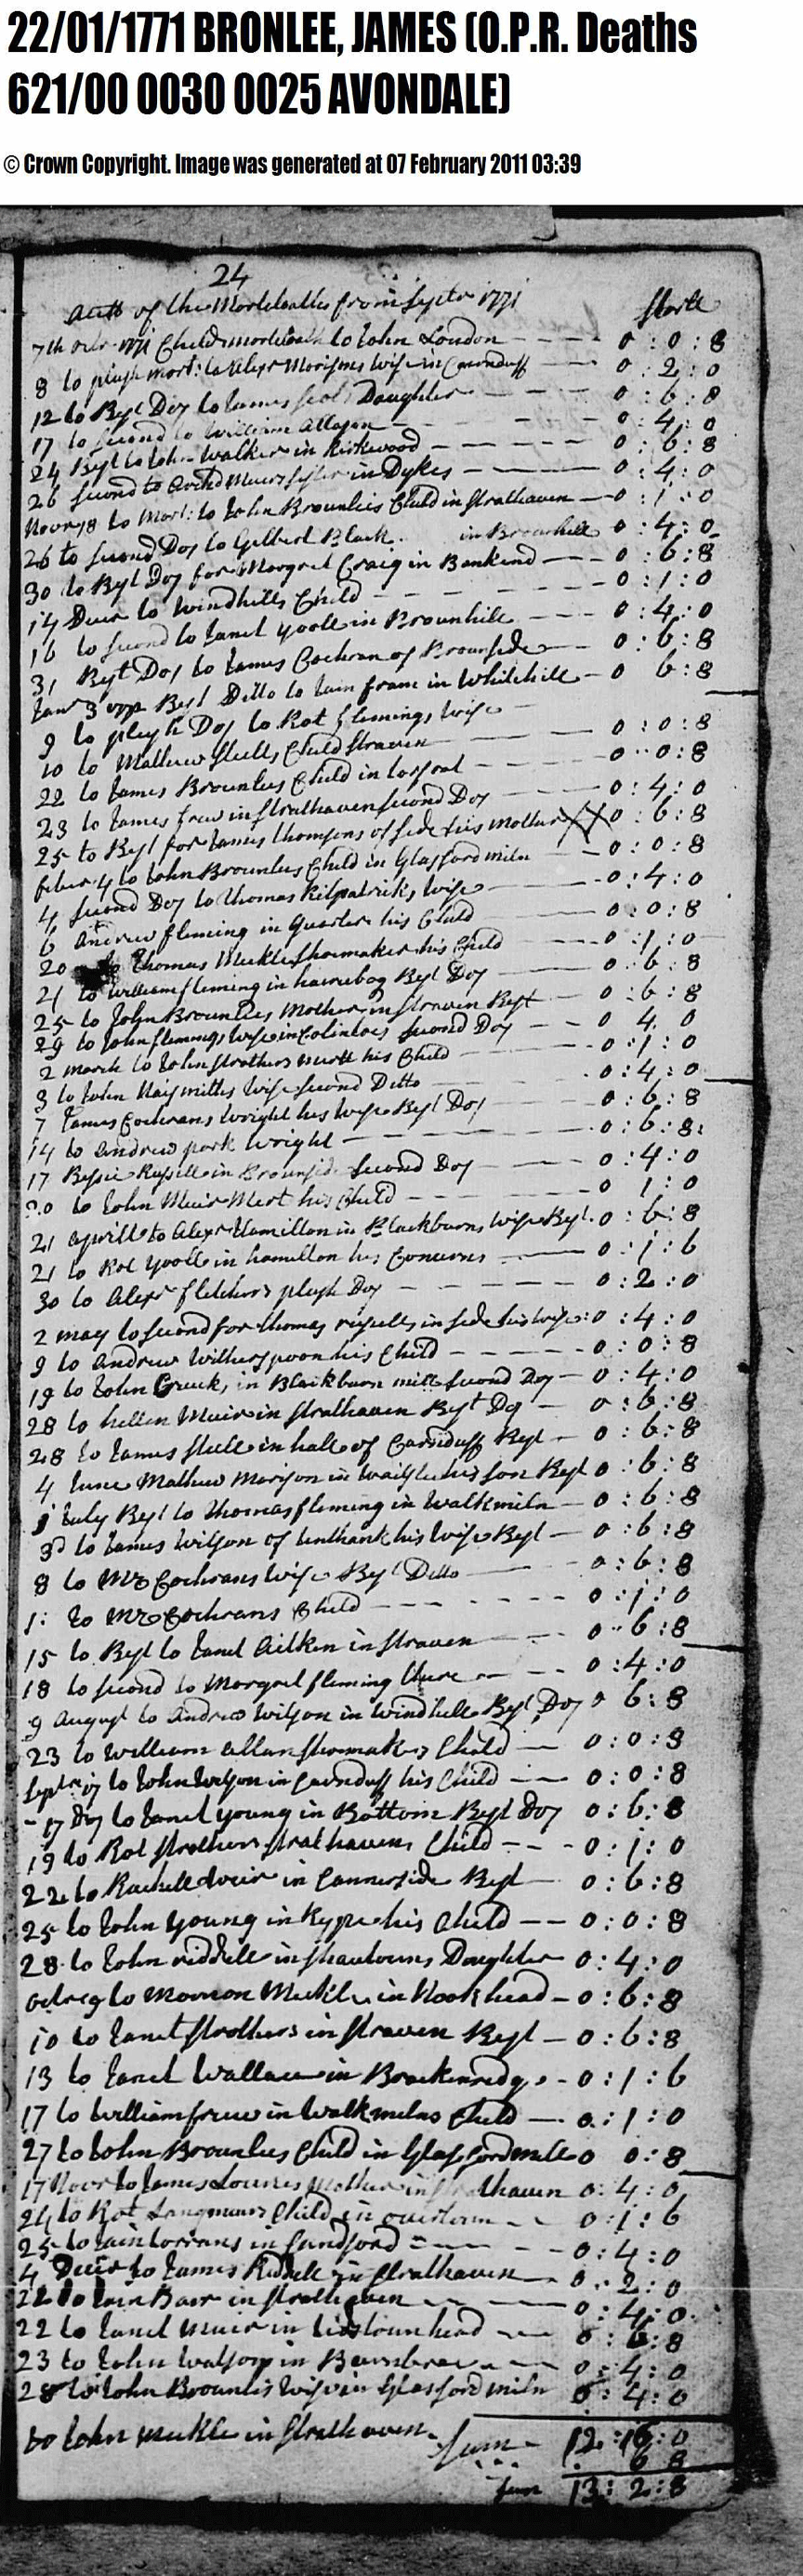 22/01/1771 BRONLEE, JAMES (O.P.R. Deaths
621/00 0030 0025 AVONDALE)
© Crown Copyright. Image was generated at 07 February 2011 03:39
24
of the Mortcloaths from Septr 1771
7th 1771 Child mortcloath to John Loudon 0 : 0 : 8
8 to plush mort: to Alexr Morisons Wife in Carnduff 0 : 2 : 0
12 to Best Doy to James Daughter 0 : 6 : 8
17 to second to William Allason 0 : 4 : 0
24 Best to John Walker in Kirkwood 0 : 6 : 8
26 second to Muirs in Dykes 0 : 4 : 0
Novr 18 to Mort: to John Brounlies Child in Strathaven 0 : 1 : 0
26 to second Doy to Gilbert Black in Brounhill 0 : 4 : 0
30 to Best Doy for Margret Craig in Bankend 0 : 6 : 8
14 Decr to Windhills Child 0 : 1 : 0
16 to second to Janet Yooll in Brounhill 0 : 4 : 0
31 Best Doy to James Cochran of Brounside 0 : 6 : 8
Janr 3 Best Ditto to in Whitehill 0 6 : 8
9 to plush Doy to Rot Flemings Wife
10 to Mathew Steills Child Straven 0 : 0 : 8
22 to James Brounlies Child in 0 0 : 8
23 to James frew in Strathaven second Doy 0 : 4 : 0
25 to Best for James Thomsons of side his Mother 0 : 6 : 8
4 to John Brounlies Child in Glasford miln 0 : 0 : 8
4 second Doy to Thomas Kilpatricks Wife 0 : 4 : 0
6 Andrew Fleming in Quarter his Child 0 : 0 : 8
20 to Thomas Meikle Shoemaker his Child 0 : 1 : 0
21 to William Fleming in Best Doy 0 : 6 : 8
25 to John Brounlies Mother in Straven Best 0 : 6 : 8
29 to John Flemings Wife in second Doy 0 4 0
2 March to John Strothers his Child 0 : 1 : 0
3 to John Naysmiths Wife second Ditto 0 : 4 : 0
7 James Cochrans Wright his Wife Best Doy 0 : 6 : 8
14 to Andrew park Wright 0 : 6 : 8
17 Russell in Brounside second Doy 0 : 4 : 0
to John Muir his Child 0 1 : 0
21 Aprill to Alexr Hamilton in Blackburn, Wife Best 0 : 6 : 8
21 to Rot Yooll in hamilton his Concerns 0 : 1 : 6
30 to Alexr Fletchers plush Doy 0 : 2 : 0
2 May to second for Thomas in side his Wife 0 : 4 : 0
9 to Andrew Witherspoon his Child 0 : 0 : 8
19 to John in Blackburn mill second Doy 0 : 4 : 0
28 to hellen Muir in Strathaven Best Doy 0 : 6 : 8
28 to James Steill in hall of Carnduff Best 0 : 6 : 8
4 June Mathew Morison in his son Best 0 : 6 : 8
July Best to Thomas Fleming in Walkmiln 0 : 6 : 8
3d to James Wilson of Unthank his Wife Best 0 : 6 : 8
8 to Mr Cochrans Wife Best Ditto 0 : 6 : 8
to Mr Cochrans Child 0 : 1 : 0
15 to Best to Janet Aitken in Straven 0 6 : 8
18 to second to Margret Fleming 0 : 4 : 0
9 August to Andrew Wilson in Windhill Best Doy 0 6 : 8
23 to William Allan Shomaker Child 0 : 0 : 8
Septr 17 to John Wilson in Carnduff his Child 0 : 0 : 8
17 Doy to Janet Young in Bottom Best Doy 0 : 6 : 8
19 to Rot Strothers Strathaven, Child 0 : 1 : 0
22 to Rachell in Best 0 : 6 : 8
25 to John Young in Kype his Child 0 : 0 : 8
28 to John riddell in Daughter 0 : 4 : 0
9 to Marion Meikle in Hookhead 0 : 6 : 8
10 to Janet Strothers in Straven Best 0 : 6 : 8
13 to Janet Wallace in 0 : 1 : 6
17 to William frew in Walkmilns Child 0 : 1 : 0
27 to John Brounlies Child in Glassford mill 0 0 : 8
17 Novr to James Mother in Strathaven 0 : 4 : 0
24 to Rot Langmuirs Child in 0 : 1 : 6
25 to in Sandford 0 : 4 : 0
4 Decr to James Riddell in Strathaven 0 : 2 : 0
22 to Barr in Strathaven 0 : 4 : 0
22 to Janet Muir in 0 : 6 : 8
23 to John Watson in 0 : 4 : 0
28 to John Brounlis Wife in Glasford miln 0 : 4 : 0
to John Meikle in Strathaven
Sum 12 : 16 : 0
6 8
Sum 13 : 2 : 8